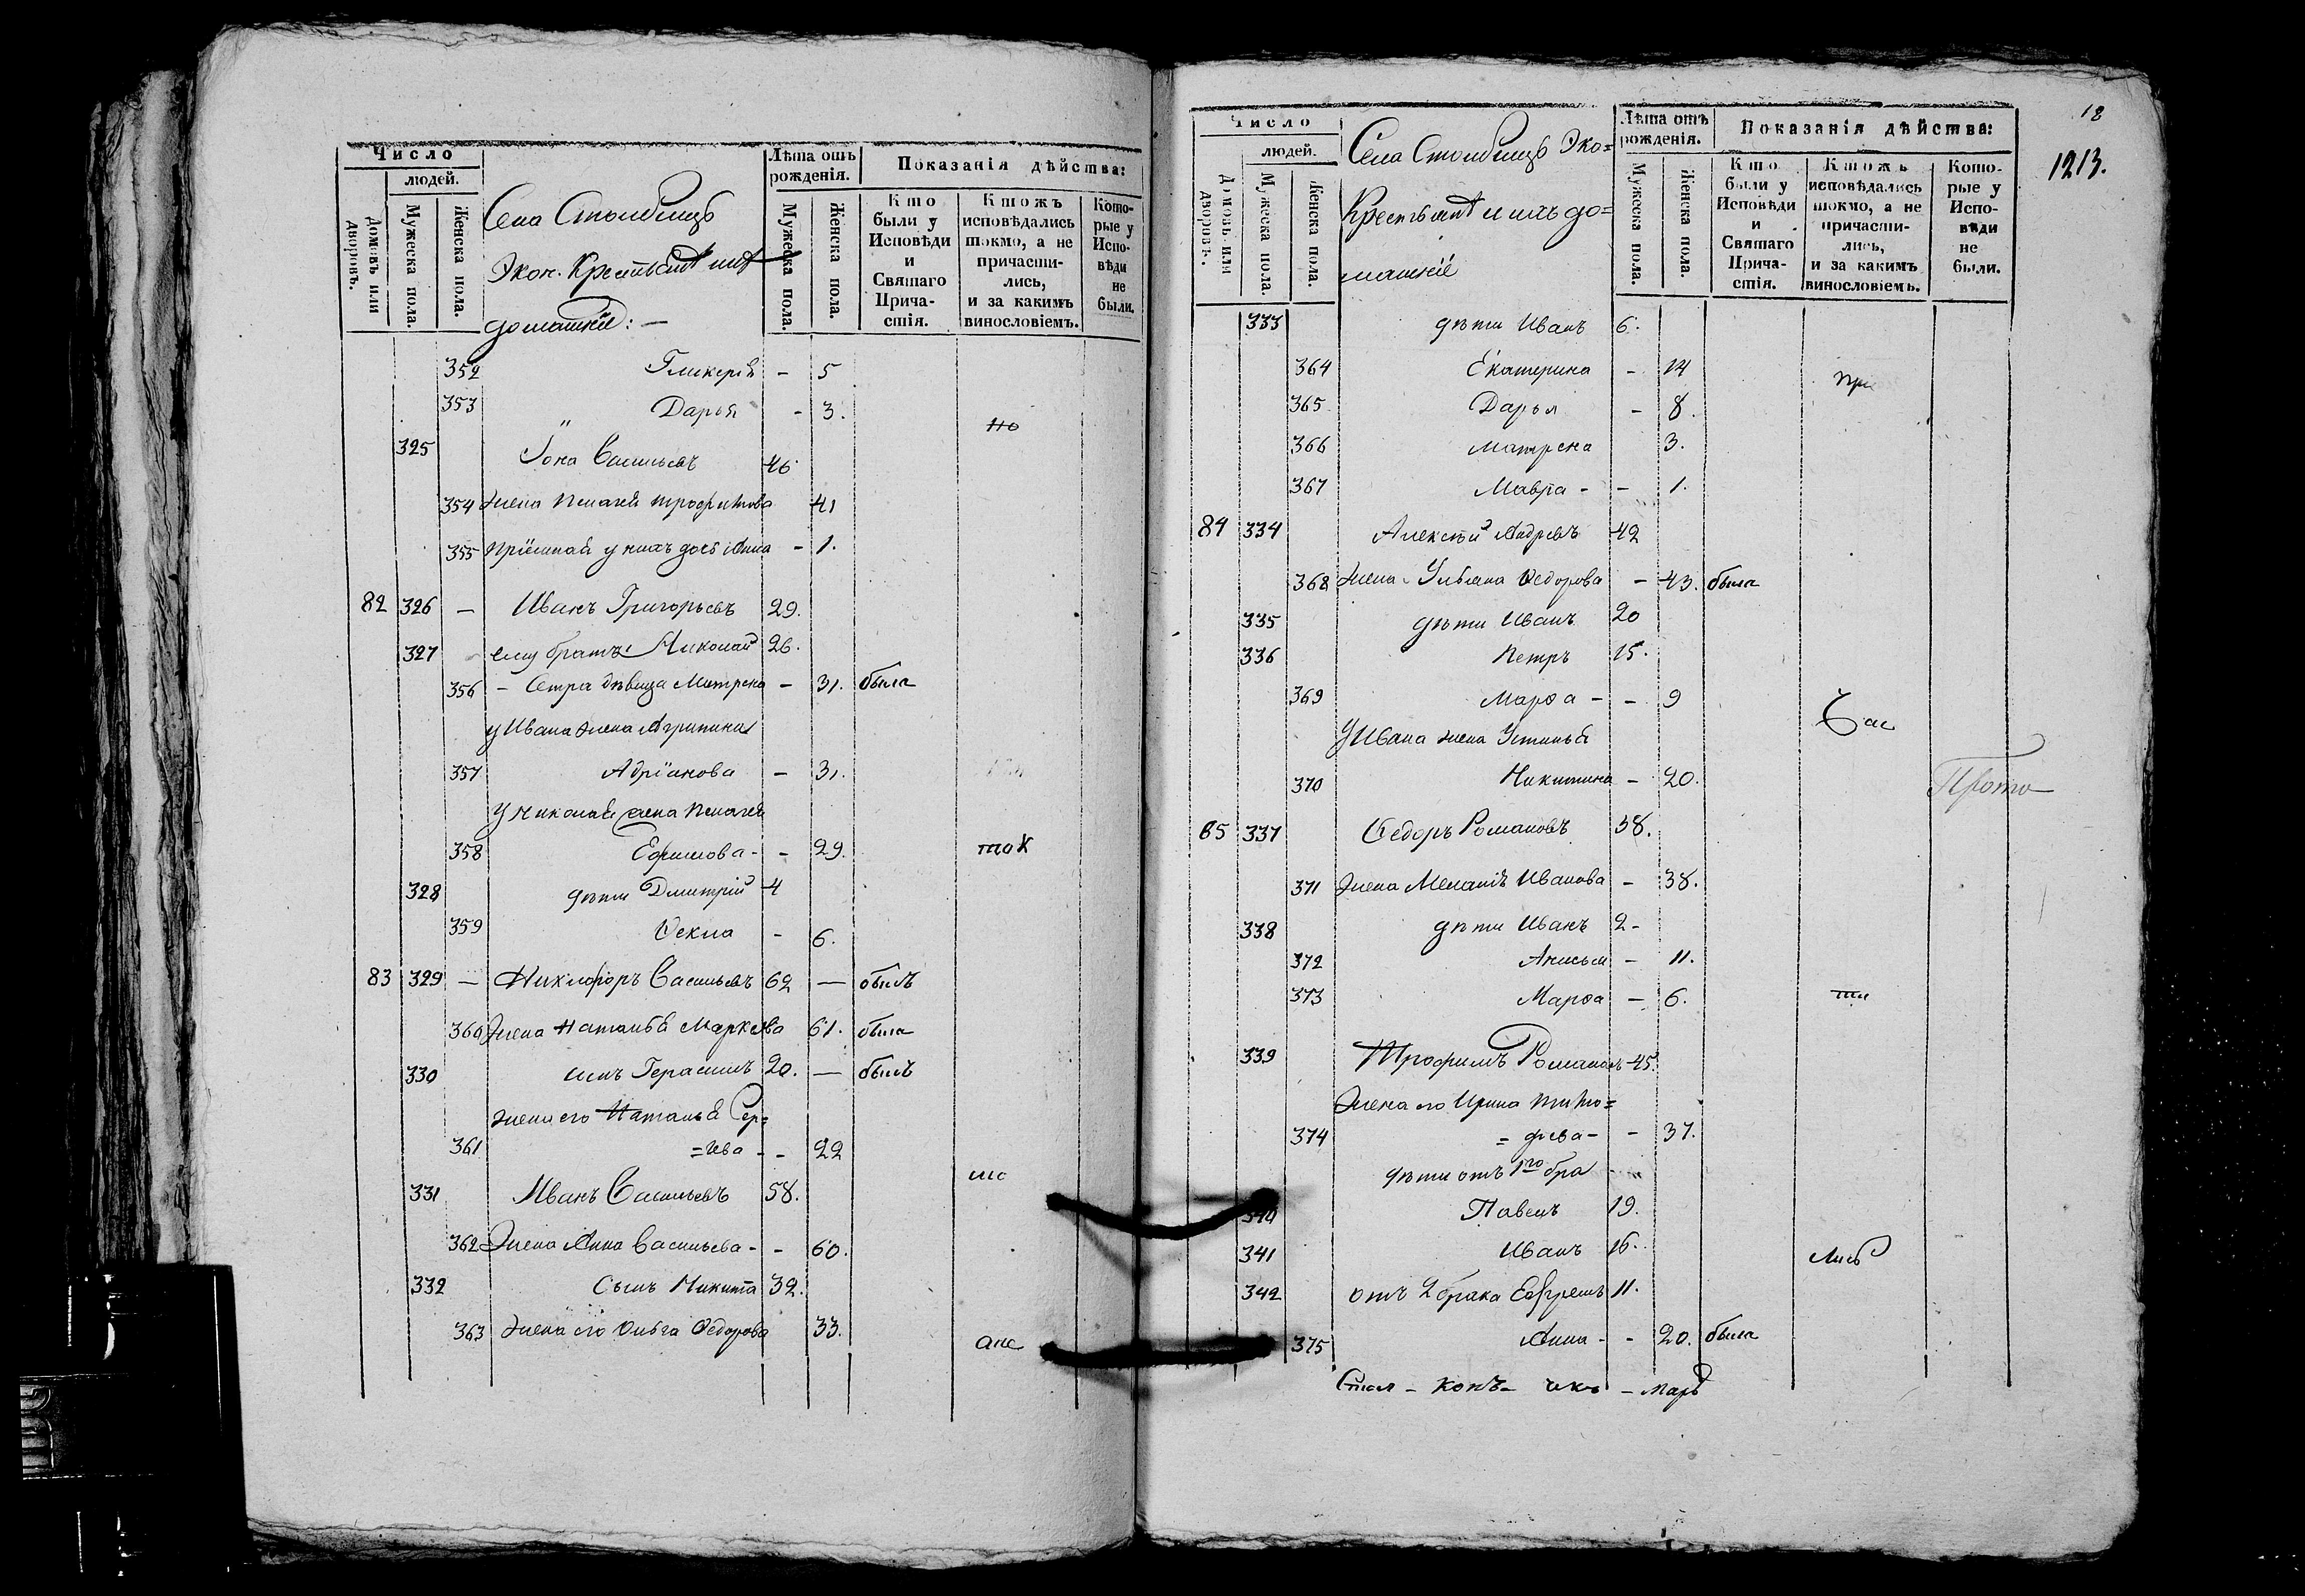 Число
людей.
Домовъ или дворовъ.
Мужеска пола.
Женска пола.
Села Столбищъ
Экон. Крестьяня и ихъ
домашніе: —
Лѣта отъ рожденія.
Мужеска пола.
Женска пола.
Показанія дѣйства:
Кто были у Исповѣди и Святаго Причастія.
Ктожъ исповѣдались токмо, а не причастились, и за какимъ винословіемъ.
Которые у Исповѣди не были.
352 Гликерія - 5
353 Дарья - 3.
но
325 Іона Васильевъ 46
354 жена Пелагея Трофимова 41
355 Пріемная у нихъ дочь Анна - 1.
82 326 — Иванъ Григорьевъ 29.
327 ему братъ Николай 26.
356 - Сетра дѣвица Матрена - 31. была
у Ивана жена Агрипина
357 Адріанова - 31.
У Николая жена Пелагея
358 Ефимова - - 29.
ток
328 дѣти Дмитрій 4
359 Ѳекла - 6.
83 329 — Никифоръ Васильевъ 62 — былъ
360 Жена Наталья Маркова 61. была
330 сынъ Герасимъ 20. — былъ
жена его Наталья Сер=
361 =ева - - 22
331 Иванъ Васильевъ 58.
362 Жена Анна Васильева - - 60.
332 Сынъ Никита 32.
363 жена его Ольга Ѳедорова 33.
18
1213.
Число
людей.
Домовъ или дворовъ.
Мужеска пола.
Женска пола.
Села Столбищъ Эко=
Крестьяня и ихъ до=
машніе
Лѣта отъ рожденія.
Мужеска пола.
Женска пола.
Показанія дѣйства:
Кто были у Исповѣди и Святаго Причастія.
Ктожъ исповѣдались токмо, а не причастились, и за какимъ винословіемъ.
Которые у Исповѣди не были.
333 дѣти Иванъ 6.
364 Екатерина - 14
при
365 Дарья - 8.
366 Матрена 3.
367 Мавра - - 1.
84 334 Алексѣй Андревъ 42
368 жена Ульяна Ѳедорова - 43. была
335 дѣти Иванъ 20
336 Петръ 15.
369 Марѳа - - 9
час
У Ивана жена Устинья
370 Никитина - 20.
Прото
85 337 Ѳедоръ Романовъ 38.
371 Жена Меланія Иванова - 38.
338 дѣти Иванъ 2-
372 Анисья - 11.
373 Марѳа - 6.
ти
339 Трофимъ Романовъ 45.
Жена его Ирина Тимо=
374 =феева - - 37.
дѣти отъ 1го бра
340 Павелъ 19.
341 Иванъ 16.
лись
342 отъ 2 брака Ефремъ 11.
375 Анна - - 20. была